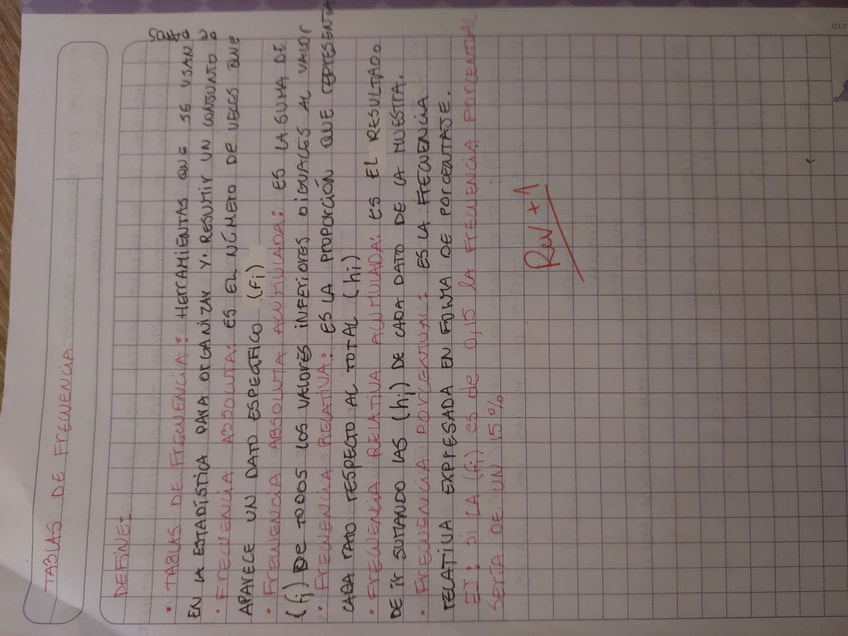 TABLAS DE FRECUENCIA
DEFINE:
• TABLAS DE FRECUENCIA: HERRAMIENTAS QUE SE USAN
EN LA ESTADÍSTICA PARA ORGANIZAR Y RESUMIR UN CONJUNTO
• FRECUENCIA ABSOLUTA: ES EL NÚMERO DE VECES QUE
APARECE UN DATO ESPECÍFICO (fi)
• FRECUENCIA ABSOLUTA ACUMULADA: ES LA SUMA DE
(fi) DE TODOS LOS VALORES INFERIORES O IGUALES AL VALOR
• FRECUENCIA RELATIVA: ES LA PROPORCIÓN QUE REPRESENTA
CADA DATO RESPECTO AL TOTAL (hi)
• FRECUENCIA RELATIVA ACUMULADA: ES EL RESULTADO
DE IR SUMANDO LAS (hi) DE CADA DATO DE LA MUESTRA.
• FRECUENCIA PORCENTUAL: ES LA FRECUENCIA
RELATIVA EXPRESADA EN FORMA DE PORCENTAJE.
EJ: SI LA (fi) es de 0,15 la FRECUENCIA PORCENTUAL
SERIA DE UN 15%
Rev +1